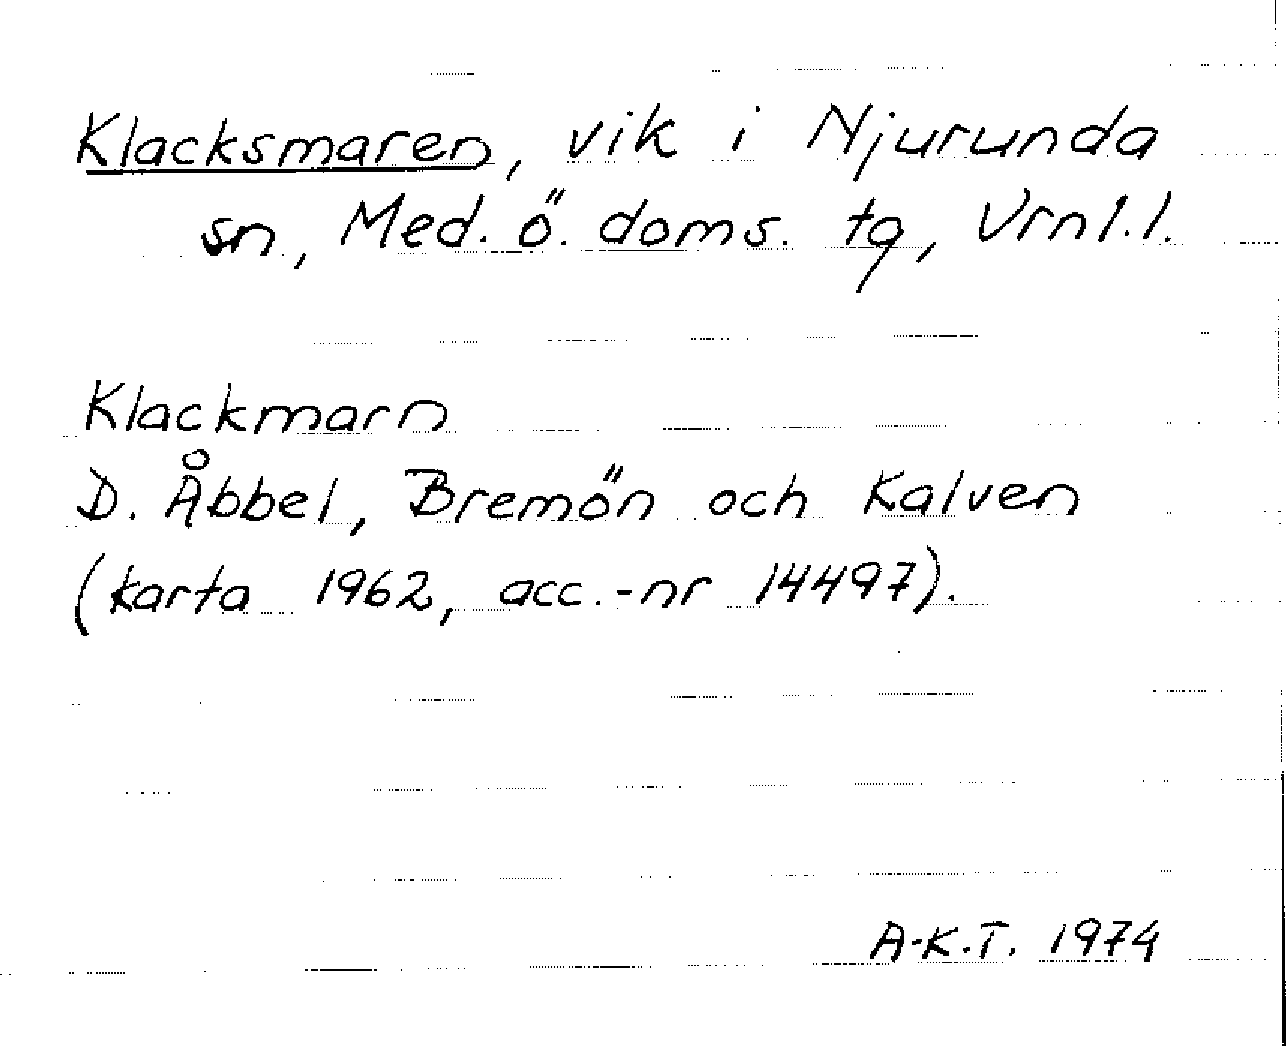 Klacksmaren, vik i Njurunda
sn, Med. ö. doms. tg, Vrnl. l.
Klackmarn
D. Åbbel, Bremön och Kalven
(karta 1962, acc.-nr 14497).
A-K.T. 1974